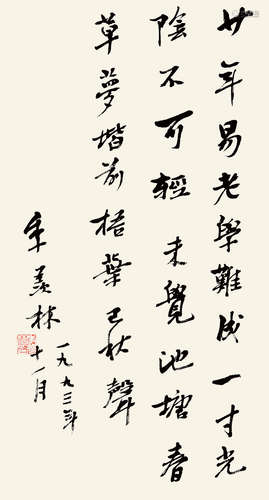 少年易老學難成一寸光
陰不可輕未覺池塘春
草夢堦前梧葉已秋聲
季羨林
一九九三年
十一月